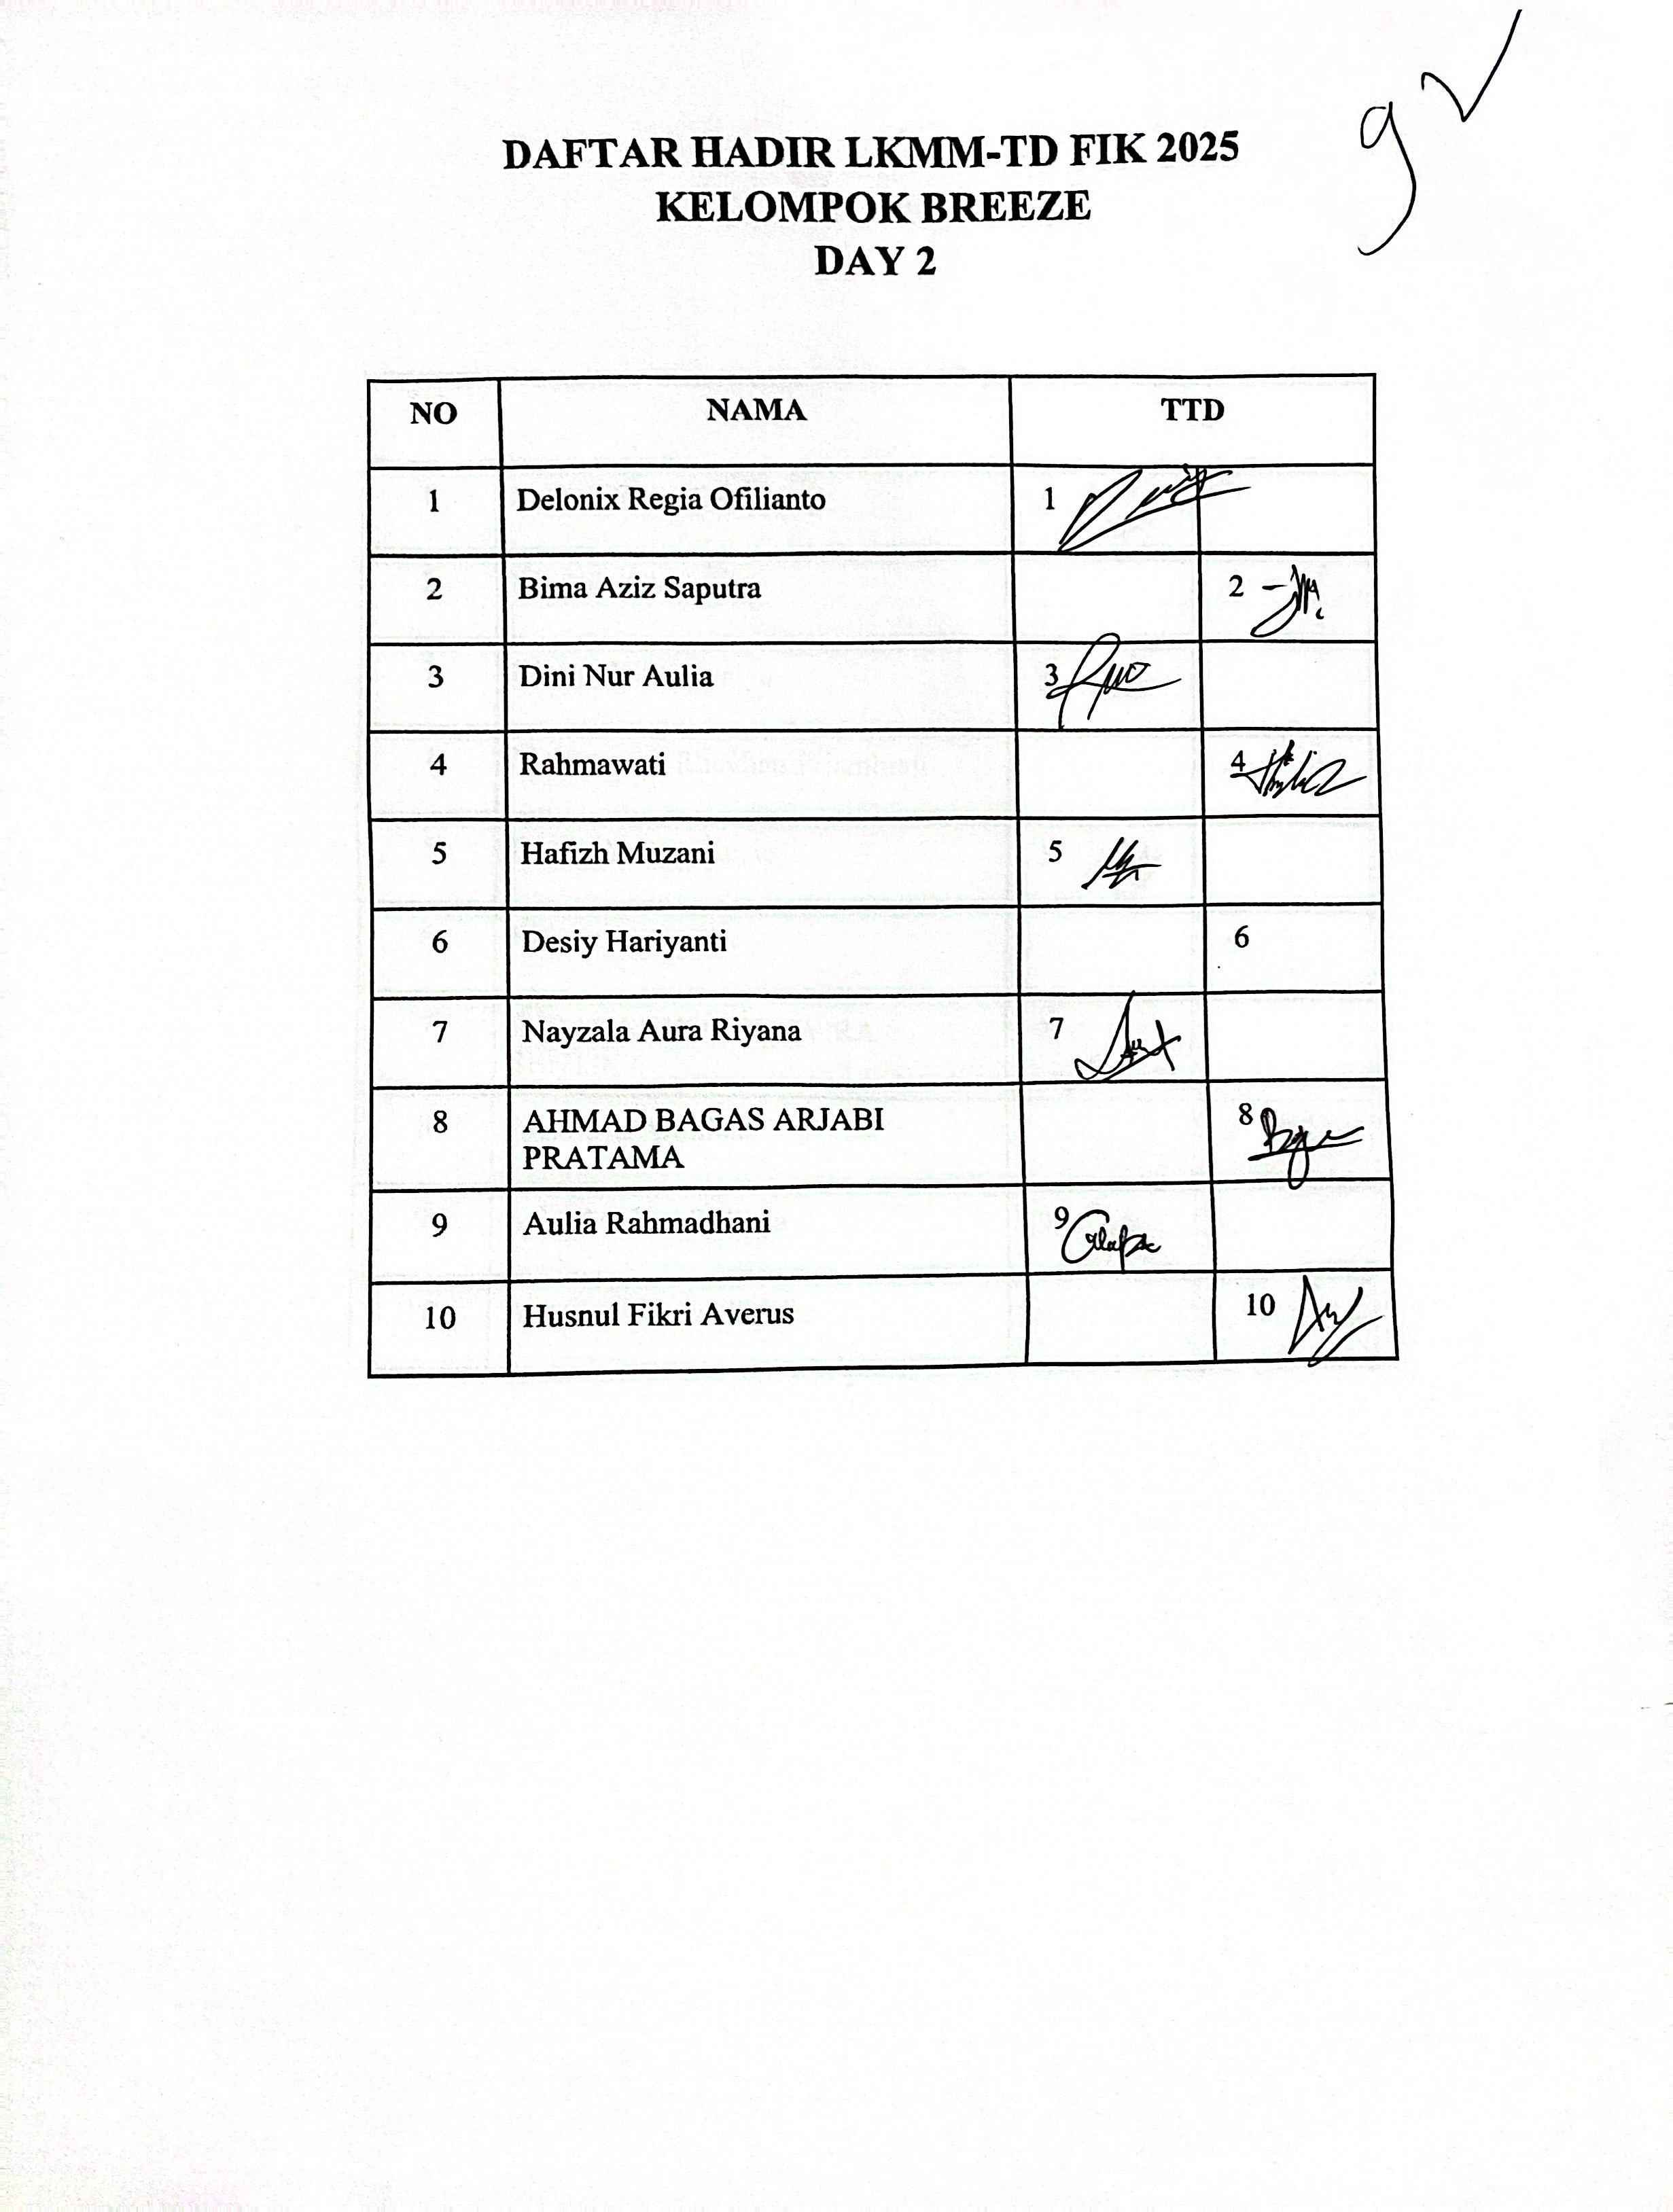 9
DAFTAR HADIR LKMM-TD FIK 2025
KELOMPOK BREEZE
DAY 2
NO NAMA TTD
1 Delonix Regia Ofilianto 1
2 Bima Aziz Saputra 2
3 Dini Nur Aulia 3
4 Rahmawati 4
5 Hafizh Muzani 5
6 Desiy Hariyanti 6
7 Nayzala Aura Riyana 7
8 AHMAD BAGAS ARJABI 8
PRATAMA
9 Aulia Rahmadhani 9
10 Husnul Fikri Averus 10